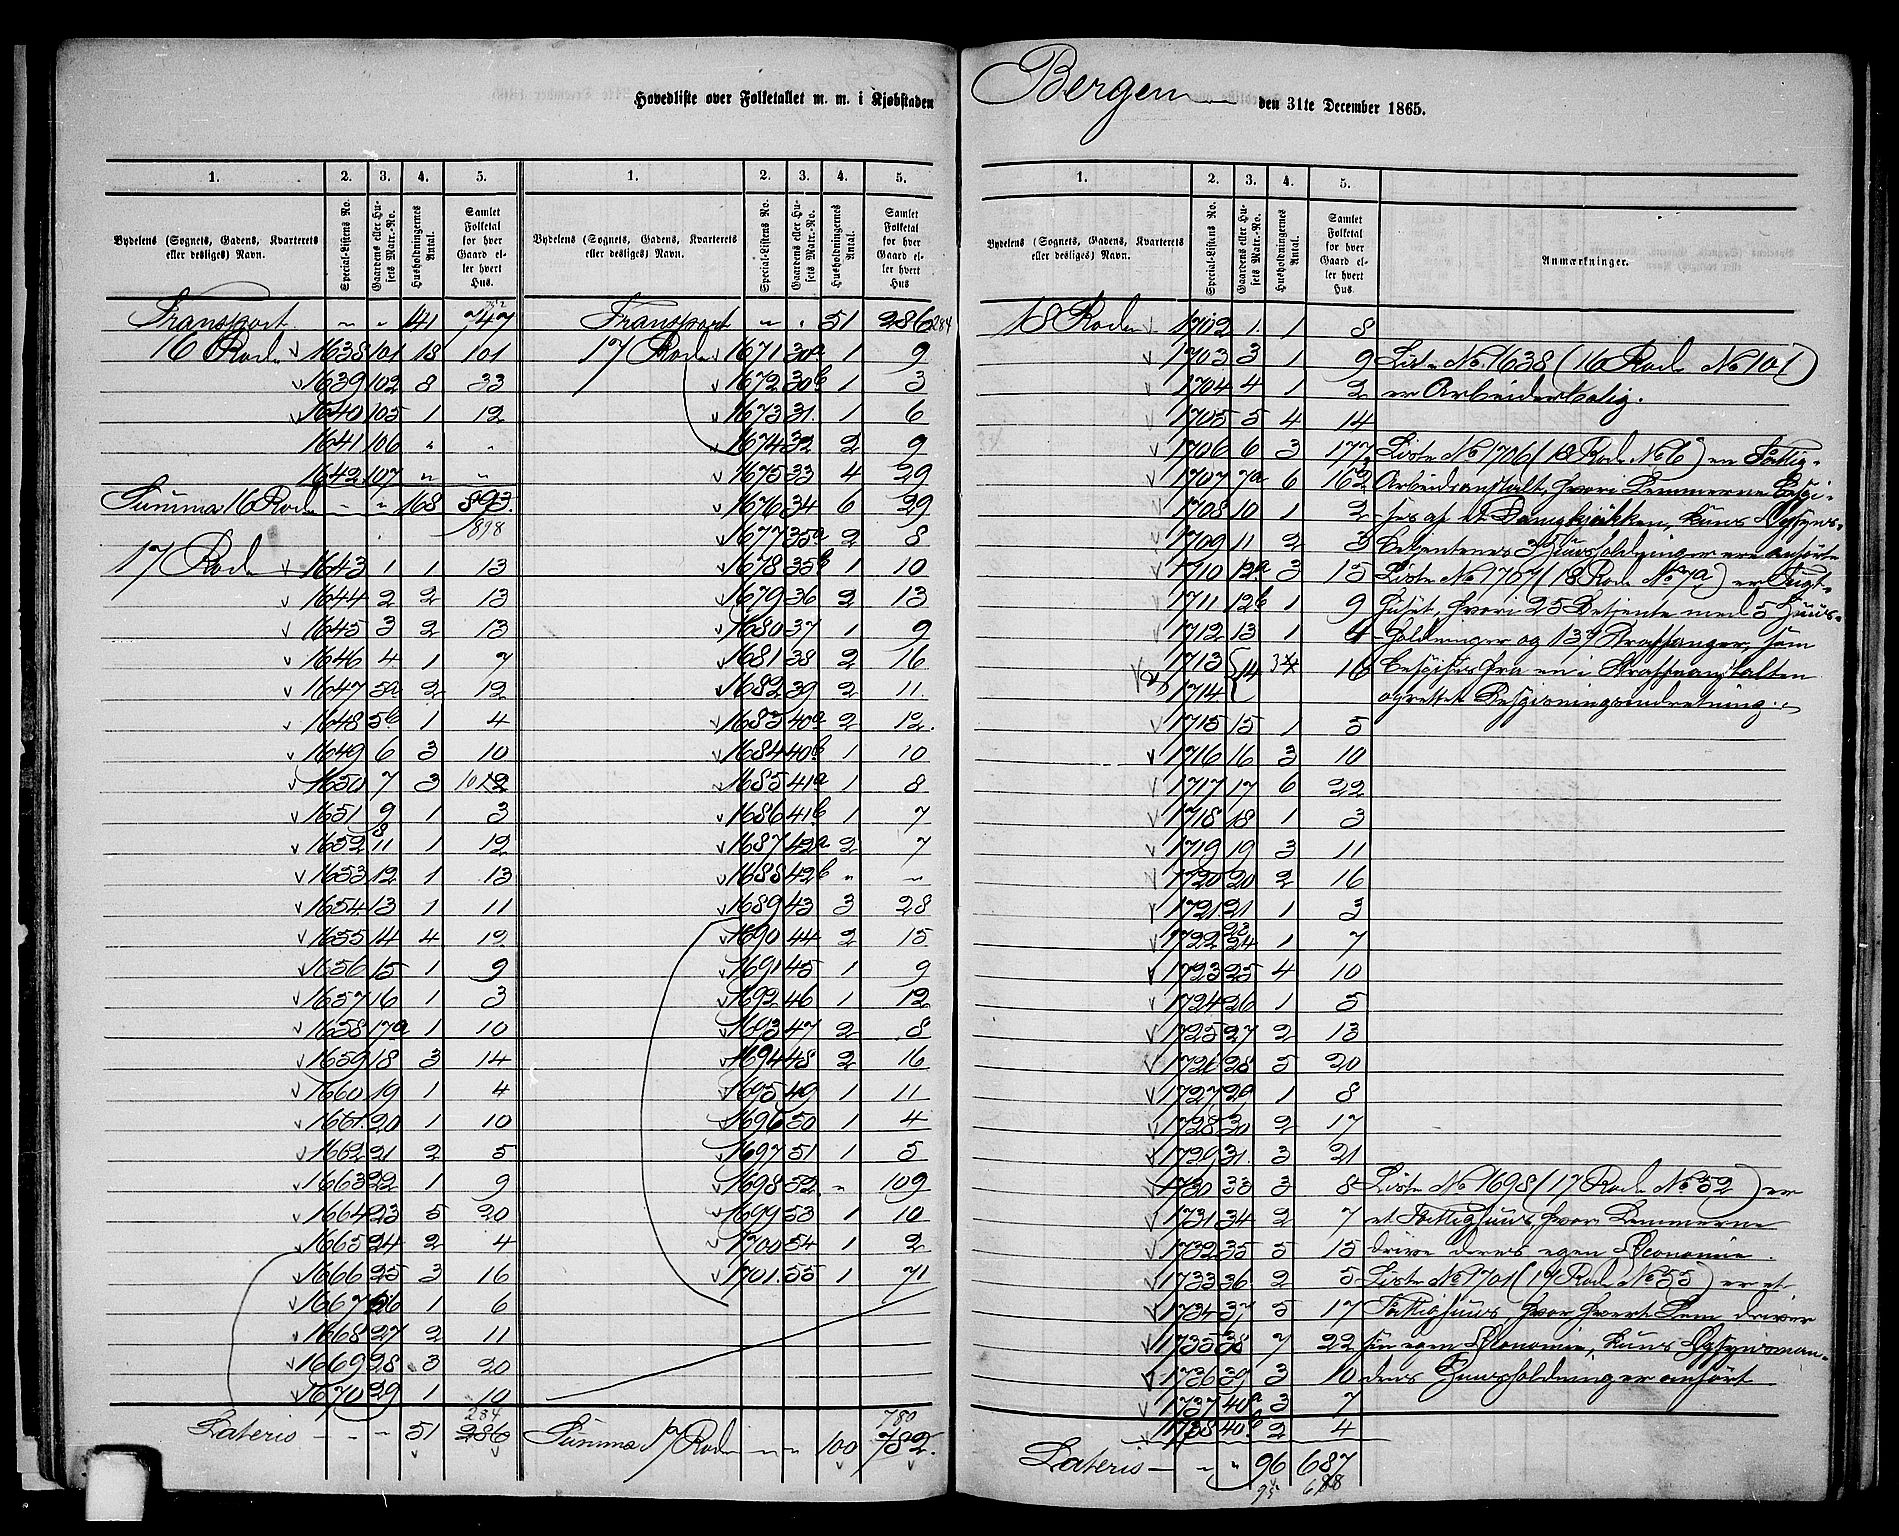 Hovedliste over Folketallet m. m. i Kjøbstaden Bergen den 31te December 1865.
1. 2. 3. 4. 5. 1. 2. 3. 4. 5.
Bydelens (Sognets, Gadens, Kvarterets eller desliges) Navn. Special-Listens No. Gaardens eller Husets Matr.-No. Husholdningernes Antal. Samlet Folketal for hver Gaard eller hvert Hus.
Bydelens (Sognets, Gadens, Kvarterets eller desliges) Navn. Special-Listens No. Gaardens eller Husets Matr.-No. Husholdningernes Antal. Samlet Folketal for hver Gaard eller hvert Hus
Transport " " 141 747 752 Transport " " 51 286 284
16 Rode 1638 101 18 101 17 Rode 1671 30a 1 9
1639 102 8 33 1672 30b 1 3
1640 105 1 12 1673 31. 1 6
1641 106 " " 1674 32 2 9
1642 107 " " 1675 33 4 29
Summa 16 Rode " " 168 893. 1676 34 6 29
898 1677 35a 2 8
17 Rode 1643 1 1 13 1678 35b 1 10
1644 2 2 13 1679 36 2 13
1645 3 2 13 1680 37 1 9
1646 4 1 7 1681 38 2 16
1647 5a 2 12 1682 39 2 11
1648 5b 1 4 1683 40a 2 12.
1649 6 3 10 1684 40b 1 10
1650 7 3 10 12 1685 41a 1 8
1651 9 1 3 1686 41b 1 7
1652 8 11 1 12 1687 42a 2 7
1653 12 1 13 1688 42b " "
1654 13 1 11 1689 43 3 28
1655 14 4 12 1690 44 2 15
1656 15 1 9 1691 45 1 9
1657 16 1 3 1692 46 1 12
1658 17a 1 10 1693 47 2 8
1659 18 3 14 1694 48 2 16
1660 19 1 4 1695 49 1 11
1661 20 1 10 1696 50 1 4
1662 21 2 5 1697 51 1 5
1663 22 1 9 1698 52. " 109
1664 23 5 20 1699 53 1 10
1665 24 2 4 1700 54 1 2
1666 25 3 16 1701. 55 1 71
1667 26 1 6
1668 27 2 11
1669 28 3 20
1670 29 1 10
284 780
Lateris 51 286 Summa 17 Rode " " 100 782.
1. 2. 3. 4. 5.
Bydelens (Sognets, Gadens, Kvarterets eller desliges) Navn. Special-Listens No. Gaardens eller Husets Matr.-No. Husholdningernes Antal. Samlet Folketal for hver Gaard eller hvert Hus. Anmærkninger.
18 Rode 1702 1. 1 8
1703 3 1 9 Liste No 1638 (16 Rode No 101)
1704 4 1 2 er Arbeiderbolig.
1705 5 4 14
1706 6 3 177 Liste No 1706 (18 Rode No 6) en Fattig-
1707 7a 6 162 Arbeidsanstalt, hvori Lemmerne bespi-
1708 10 1 2 ses af et Dampkjøkken, kuns Opsyns-
1709 11 2 3 betjentenes Huusholdninger ere anførte
1710 12a 3 15 Liste No 1707 (18 Rode No 7a) er Tugt-
1711 12b 1 9 huset, hvori 25 Betjente med 5 Huus-
1712 13 1 4 holdninger og 137 Straffanger, som
1713 14 3 16 bespises fra en i Straffeanstalten
1714 oprettet Bespisningsindretning.
1715 15 1 5
1716 16 3 10
1717 17 6 22
1718 18 1 3
1719 19 3 11
1720 20 2 16
1721 21 1 3
1722 23 24 1 7
1723 25 4 10
1724 26 1 5
1725 27 2 13
1726 28 5 20
1727 29 1 8
1728 30 2 17
1729 31. 3 21
1730 33 3 8 Liste No 1698 (17 Rode No 52) er
1731 34 2 7 et Fattighuus, hvor Lemmerne
1732 35 5 15 drive deres egen Økonomie.
1733 36 2 5 Liste No 1701 (17 Rode No 55) er et
1734 37 5 17 Fattighuus, hvor hvert Lem driver
1735 38 7 22 sin egen Økonomie, kuns Opsynsman-
1736 39 3 10 dens Huusholdning er anført
1737 40a 3 7
1738 40b 2 4
Lateris " " 96 687
95 688